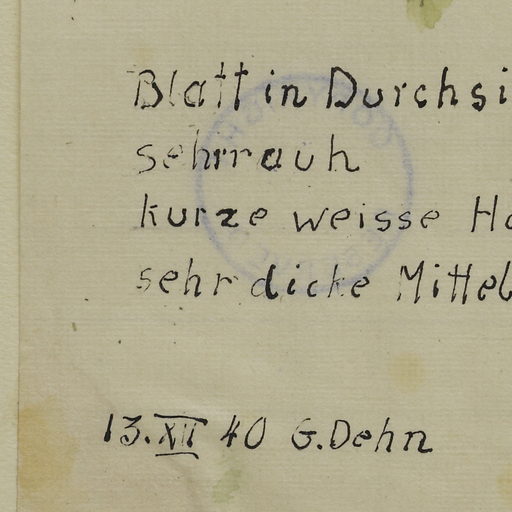 Blatt in Durchsi
sehr rauh
kurze weisse Ha
sehr dicke Mittel
13. XII 40 G. Dehn